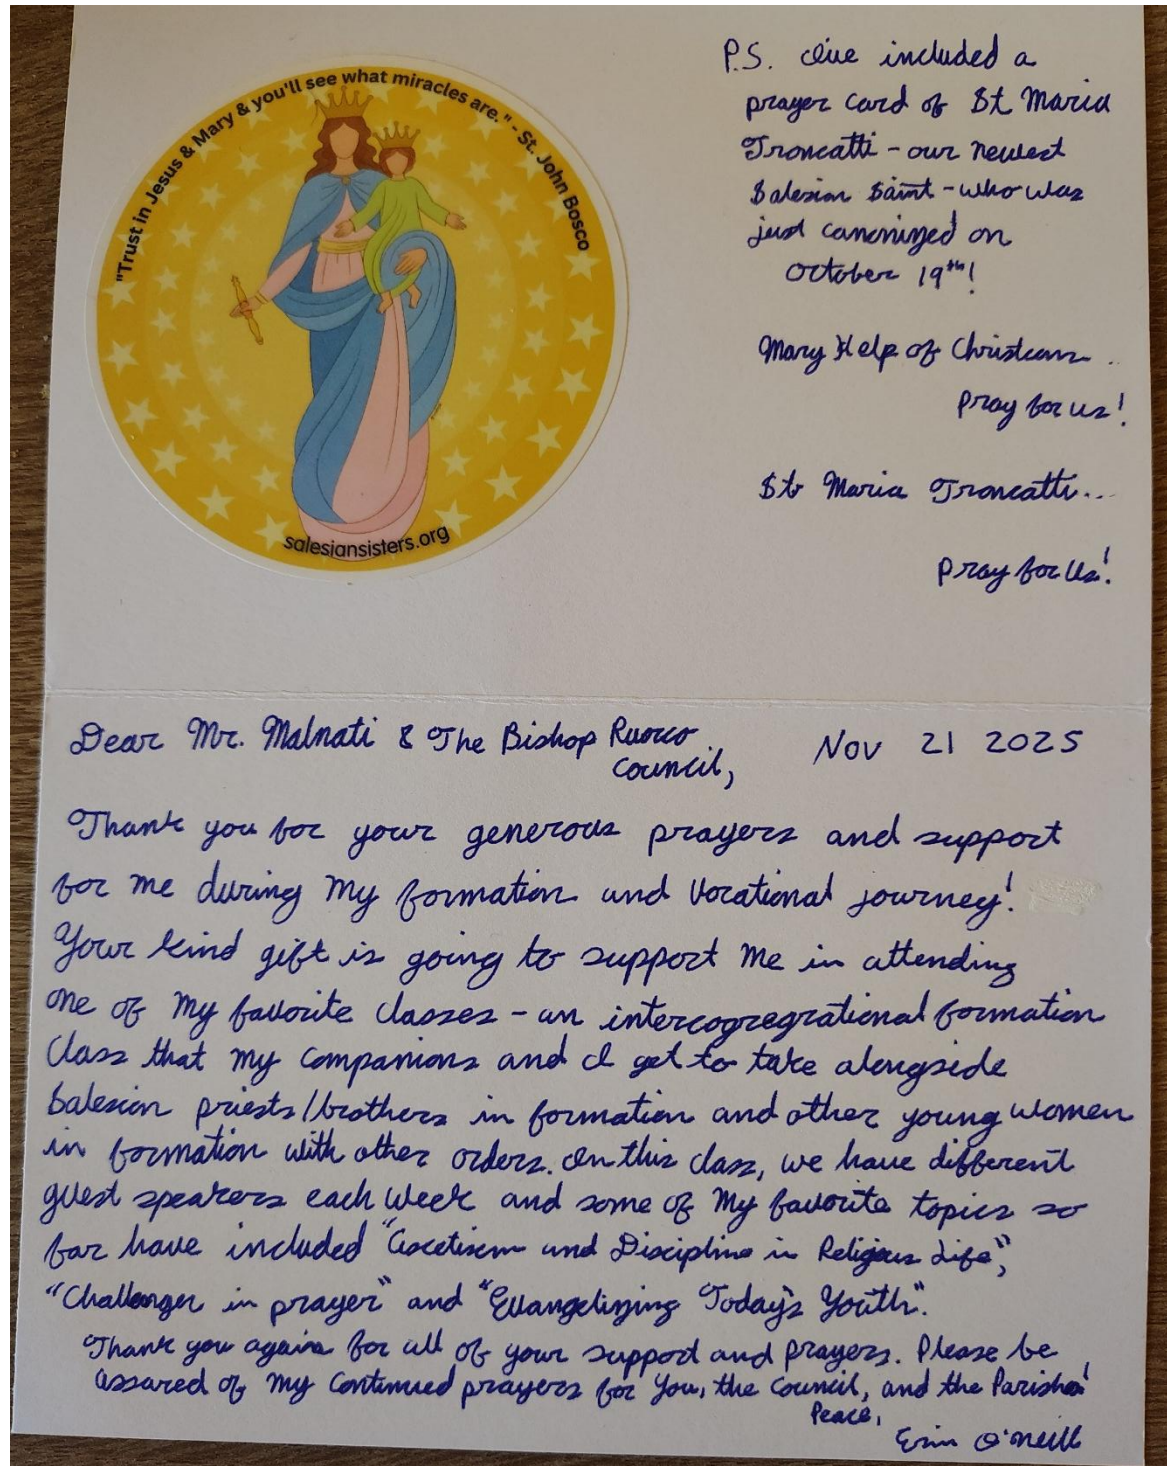 "Trust in Jesus & Mary & you'll see what miracles are." - St. John Bosco
salesiansisters.org
P.S. I've included a
prayer card of St Maria
Troncatti - our newest
Salesian Saint - who was
just canonized on
October 19th!
Mary Help of Christians...
pray for us!
St Maria Troncatti...
pray for Us!
Dear Mr. Malnati & The Bishop Ruocco
Council,
Nov 21 2025
Thank you for your generous prayers and support
for me during my formation and vocational journey!
Your kind gift is going to support me in attending
one of my favorite classes - an intercogregrational formation
class that my companions and I get to take alongside
Salesian priests/brothers in formation and other young women
in formation with other orders. In this class, we have different
guest speakers each week and some of my favorite topics so
far have included "Ascetism and Discipline in Religious Life",
"Challenges in prayer" and "Evangelizing Today's Youth".
Thank you again for all of your support and prayers. Please be
assured of my continued prayers for you, the Council, and the Parishes!
Peace,
Erin O'Neill